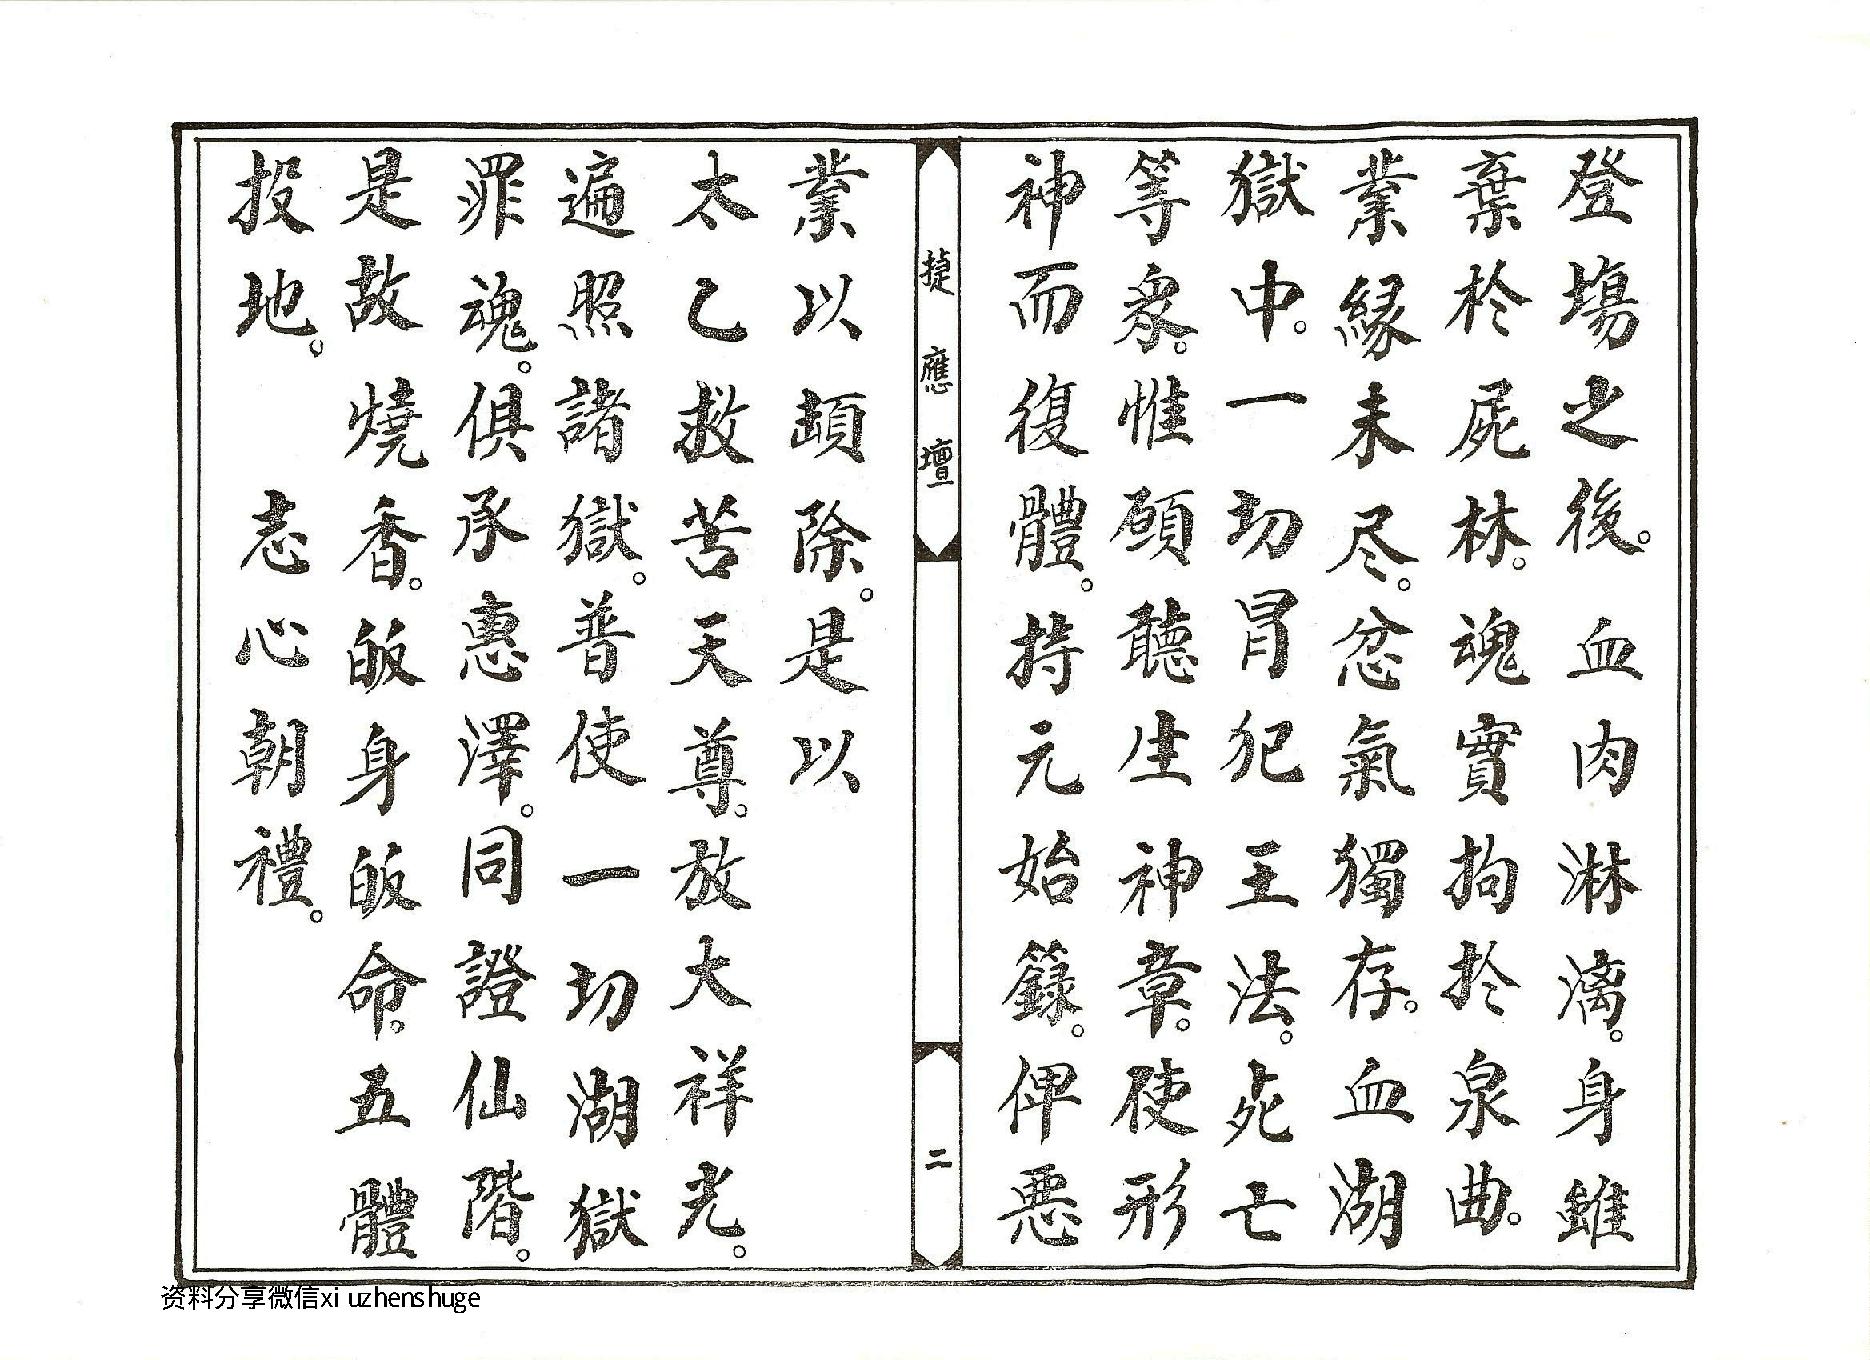 登塲之後。血肉淋漓。身雖
棄於屍林。魂實拘於泉曲。
業緣未尽。忿氣獨存。血湖
獄中。一切冐犯王法。死亡
等衆。惟願聽生神章。使形
神而復體。持元始籙。俾悪
㨗應壇
二
業以頓除。是以
太乙救苦天尊。放大祥光。
遍照諸獄。普使一切湖獄
罪魂。俱承惠澤。同證仙階。
是故燒香。皈身皈命。五體
投地。 志心朝禮。
资料分享微信xiuzhenshuge